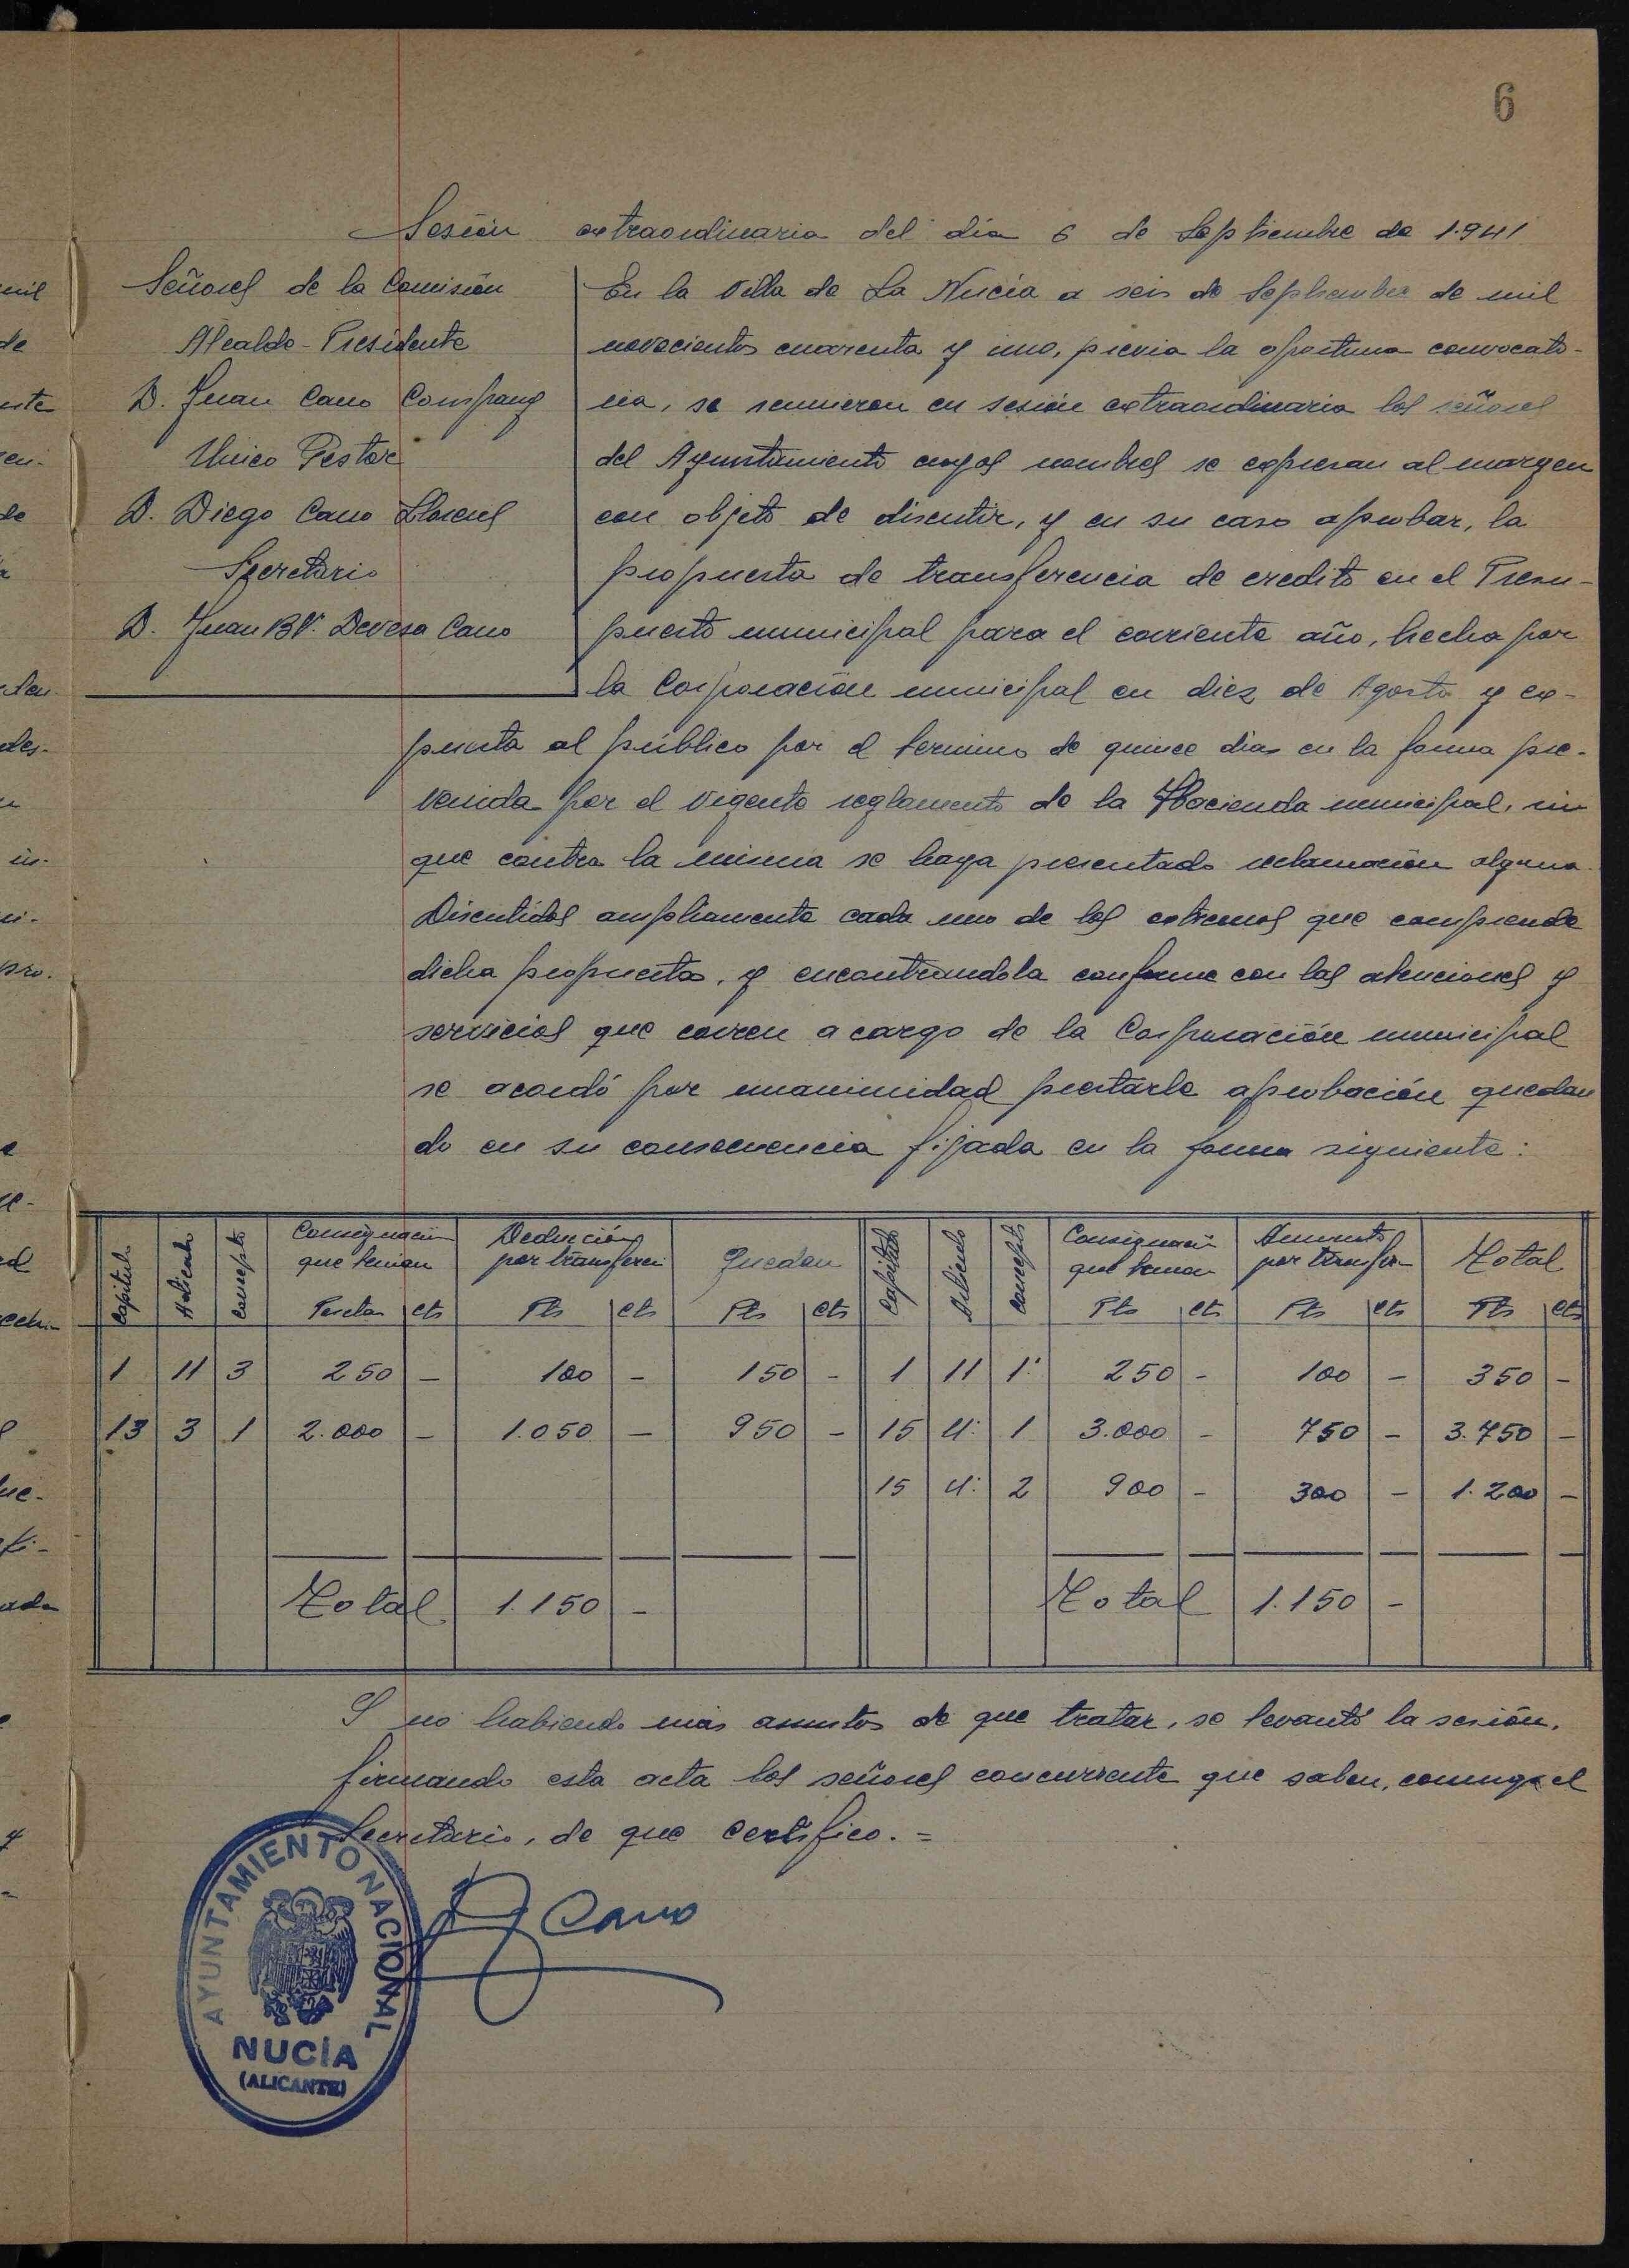 6
Sesión extraordinaria del día 6 de Septiembre de 1.941
Señores de la Comisión
Alcalde-Presidente
D. Juan Cano Company
Unico Gestor
D. Diego Cano Llorens
Secretario
D. Juan Bta. Devesa Cano
En la Villa de La Nucia a seis de Septiembre de mil
novecientos cuarenta y uno, previa la oportuna convocato-
ria, se reunieron en sesión extraordinaria los señores
del Ayuntamiento cuyos nombres se expresan al margen
con objeto de discutir, y en su caso aprobar, la
propuesta de transferencia de credito en el Presu-
puesto municipal para el corriente año, hecha por
la Corporación municipal en diez de Agosto y ex-
puesta al público por el termino de quince dias en la forma pre-
venida por el vigente reglamento de la Hacienda municipal, sin
que contra la misma se haya presentado reclamación alguna.
Discutidos ampliamente cada uno de los extremos que comprende
dicha propuesta, y encontrandola conforme con las atenciones y
servicios que corren a cargo de la Corporación municipal
se acordó por unanimidad prestarle aprobación quedan
do en su consecuencia fijada en la forma siguiente:
Capitulo Articulo concepto Consignación que tenian Deducción por transferen Quedan Capitulo Articulo concepto Consignación que tenian Aumento por transfer- Total
Pesetas cts Pts cts Pts cts Pts cts Pts cts Pts cts
1 11 3 250 - 100 - 150 - 1 11 1º 250 - 100 - 350 -
13 3 1 2.000 - 1.050 - 950 - 15 4º 1 3.000 - 750 - 3.750 -
15 4º 2 900 - 300 - 1.200 -
Total 1.150 - Total 1.150 -
Y no habiendo mas asuntos de que tratar, se levantó la sesión,
firmando esta acta los señores concurrente que saben, conmigo el
Secretario, de que certifico.=
J Cano
AYUNTAMIENTO NACIONAL
NUCÍA
(ALICANTE)